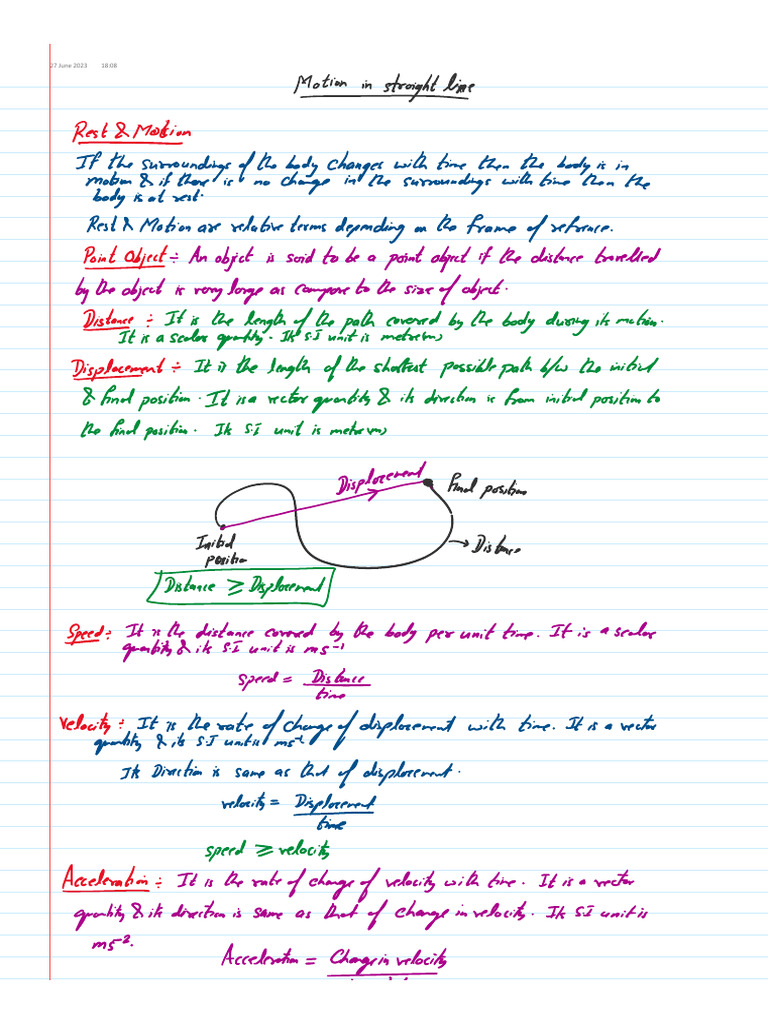 27 June 2023 18:08
Motion in straight line
Rest & Motion
If the surroundings of the body changes with time then the body is in
motion & if there is no change in the surroundings with time then the
body is at rest.
Rest & Motion are relative terms depending on the frame of refrence.
Point Object :- An object is said to be a point object if the distance travelled
by the object is very large as compare to the size of object.
Distance :- It is the length of the path covered by the body during its motion.
It is a scalar quantity. Its S.I unit is metre(m)
Displacement :- It is the length of the shortest possible path b/w the initial
& final position. It is a vector quantity & its direction is from initial position to
the final position. Its S.I unit is metre(m)
Displacement
Final position
Initial
position
→ Distance
Distance ≥ Displacement
Speed :- It is the distance covered by the body per unit time. It is a scalar
quantity & its S.I unit is ms⁻¹
speed = Distance
time
Velocity :- It is the rate of change of displacement with time. It is a vector
quantity & its S.I unit is ms⁻¹
Its Direction is same as that of displacement.
velocity = Displacement
time
speed ≥ velocity
Acceleration :- It is the rate of change of velocity with time. It is a vector
quantity & its direction is same as that of change in velocity. Its S.I unit is
ms⁻².
Acceleration = Change in velocity